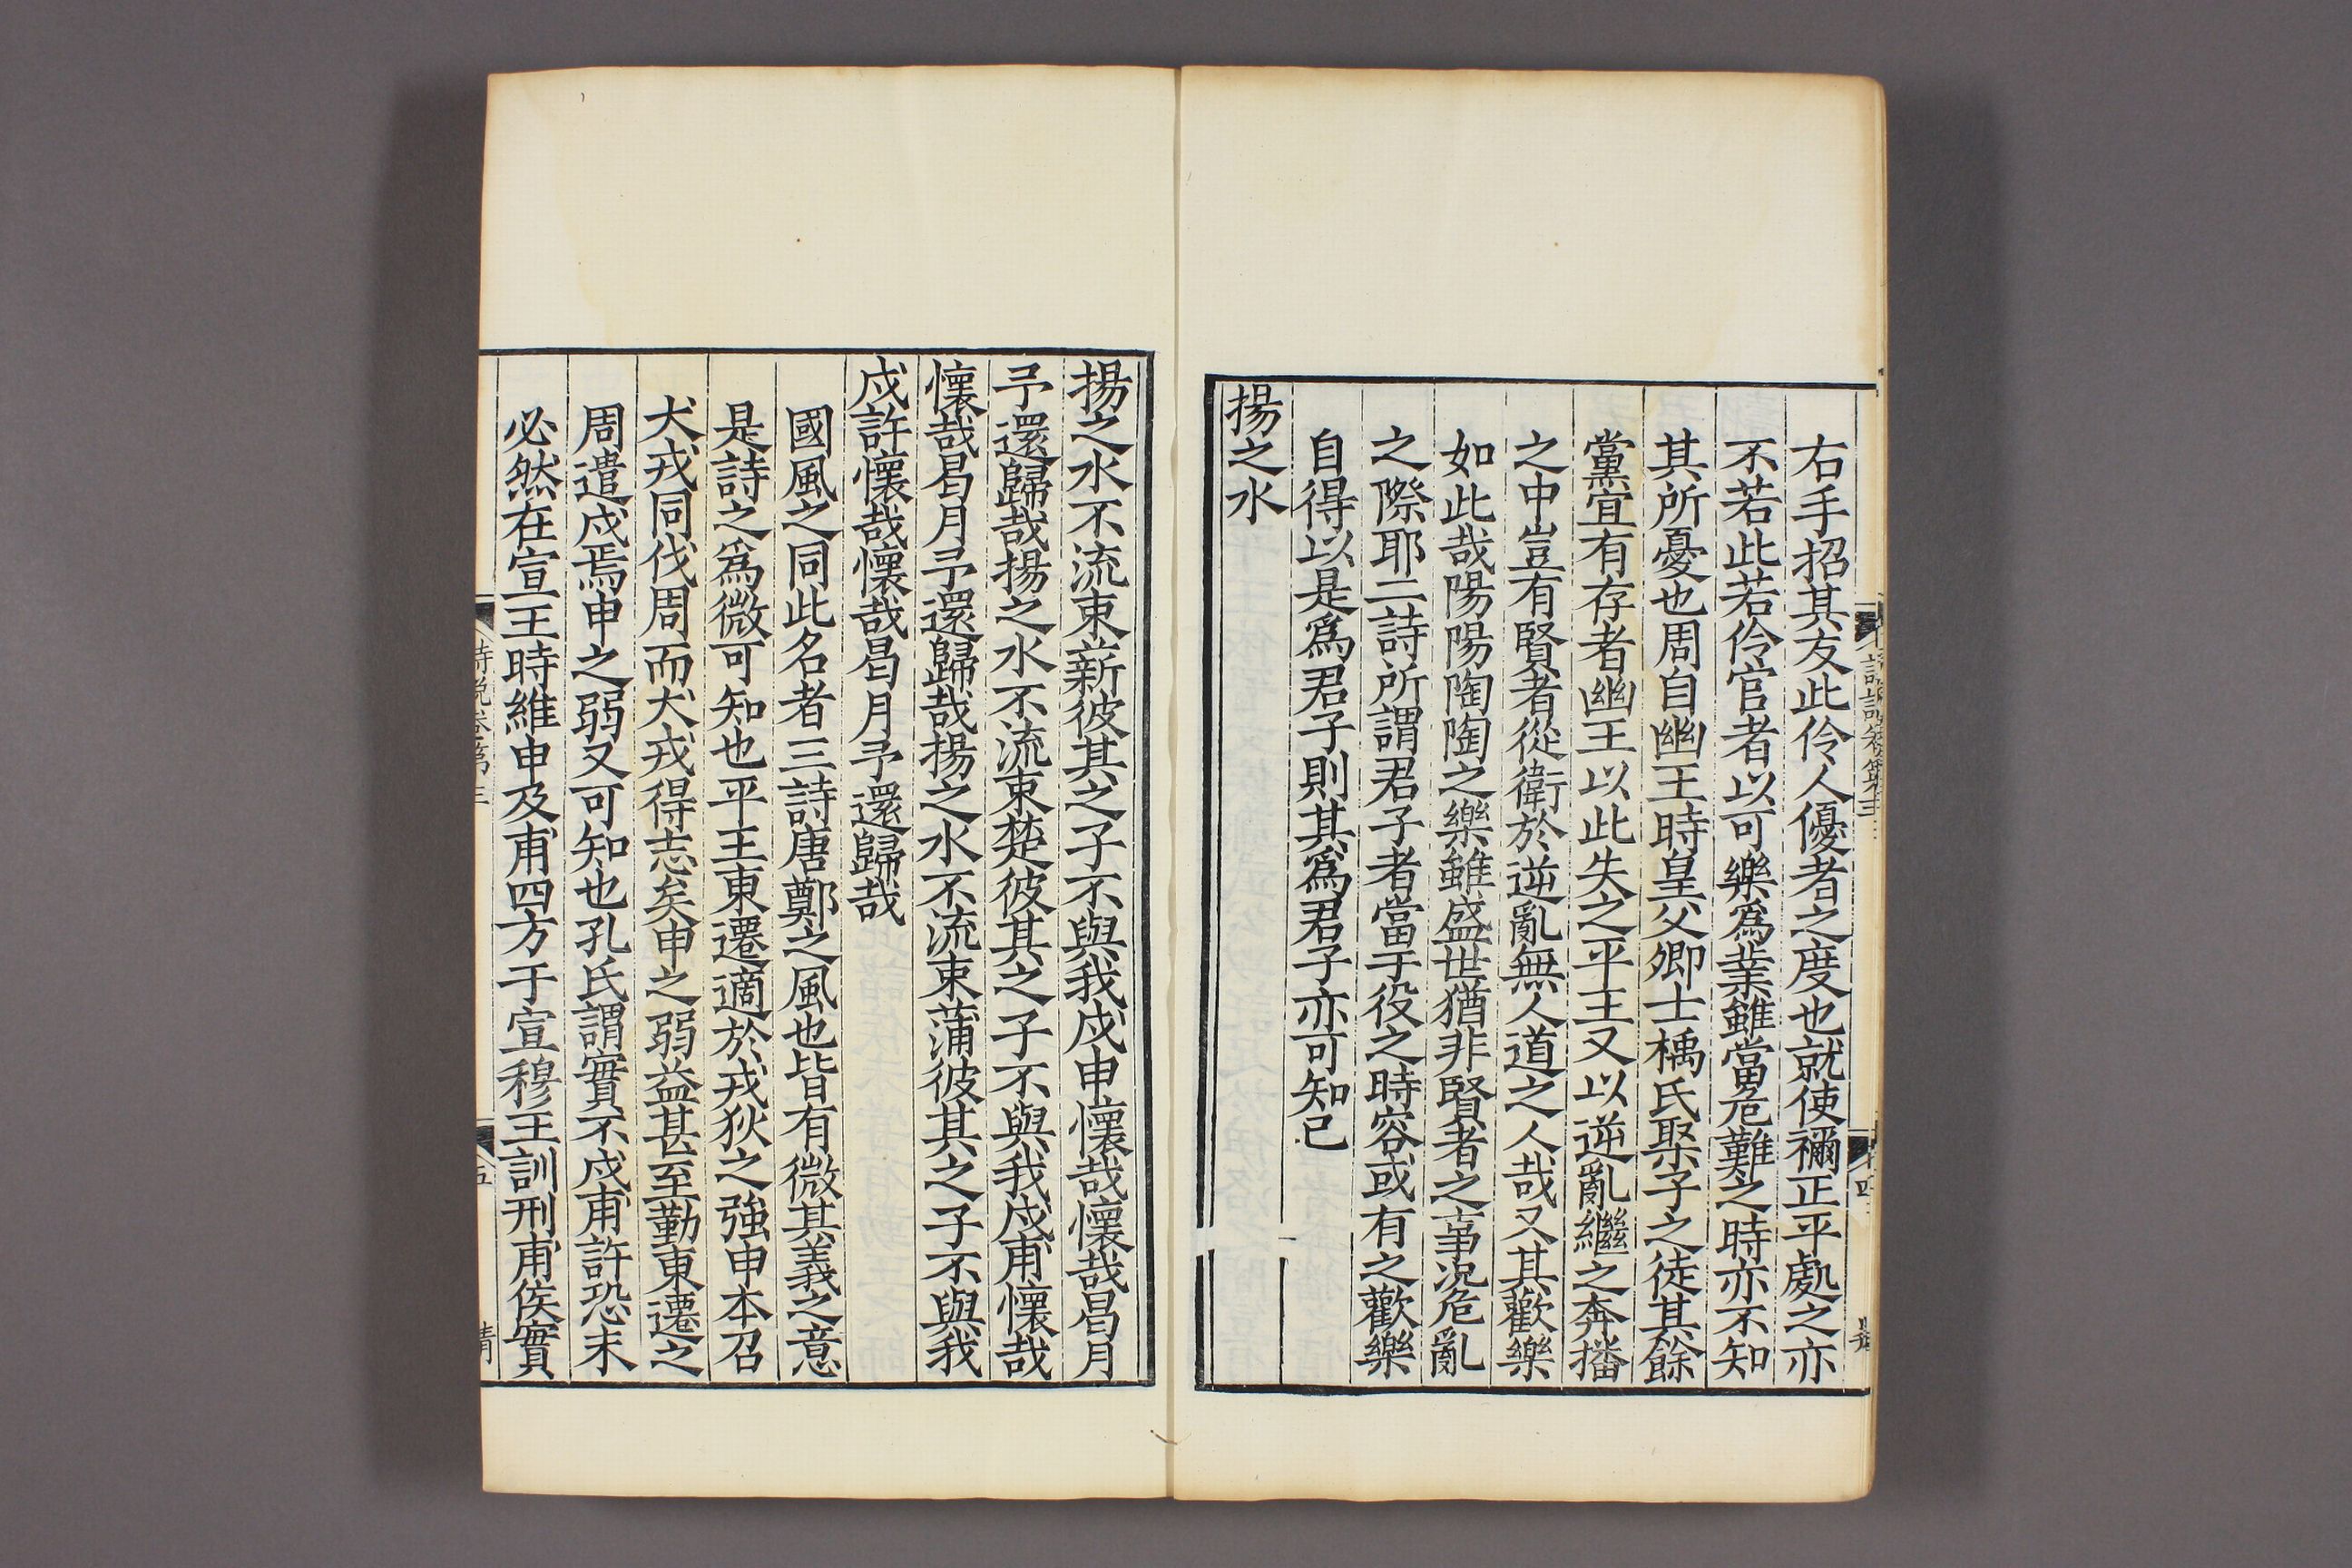 右手招其友此伶人優者之度也就使禰正平處之亦
不若此若伶官者以可樂爲業雖當危難之時亦不知
其所憂也周自幽王時皇父卿士楀氏聚子之徒其餘
黨宜有存者幽王以此失之平王又以逆亂繼之奔播
之中豈有賢者從衛於逆亂無人道之人哉又其歡樂
如此哉陽陽陶陶之樂雖盛世猶非賢者之事况危亂
之際耶二詩所謂君子者當于役之時容或有之歡樂
自得以是爲君子則其爲君子亦可知已
揚之水
揚之水不流束薪彼其之子不與我戍申懷哉懷哉曷月
予還歸哉揚之水不流束楚彼其之子不與我戍甫懷哉
懷哉曷月予還歸哉揚之水不流束蒲彼其之子不與我
戍許懷哉懷哉曷月予還歸哉
國風之同此名者三詩唐鄭之風也皆有微其義之意
是詩之爲微可知也平王東遷適於戎狄之強申本召
犬戎同伐周而犬戎得志矣申之弱益甚至勤東遷之
周遣戍焉申之弱又可知也孔氏謂實不戍甫許恐未
必然在宣王時維申及甫四方于宣穆王訓刑甫侯實
詩説卷第三
五